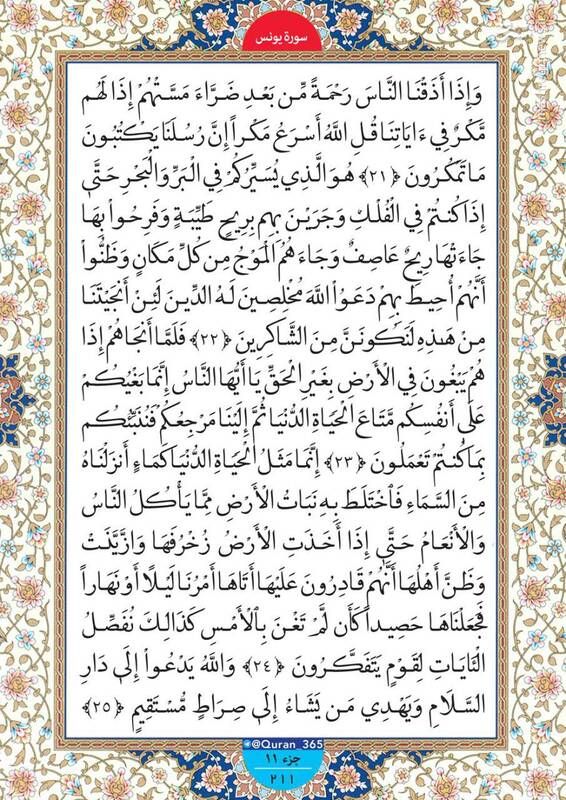 سورة يونس
وَإِذَا أَذَقْنَا النَّاسَ رَحْمَةً مِّن بَعْدِ ضَرَّاءَ مَسَّتْهُمْ إِذَا لَهُم
مَّكْرٌ فِي ءَايَاتِنَا قُلِ اللَّهُ أَسْرَعُ مَكْراً إِنَّ رُسُلَنَا يَكْتُبُونَ
مَا تَمْكُرُونَ ﴿٢١﴾ هُوَ الَّذِي يُسَيِّرُكُمْ فِي الْبَرِّ وَالْبَحْرِ حَتَّى
إِذَا كُنتُمْ فِي الْفُلْكِ وَجَرَيْنَ بِهِم بِرِيحٍ طَيِّبَةٍ وَفَرِحُواْ بِهَا
جَاءَتْهَا رِيحٌ عَاصِفٌ وَجَاءَهُمُ الْمَوْجُ مِن كُلِّ مَكَانٍ وَظَنُّواْ
أَنَّهُمْ أُحِيطَ بِهِمْ دَعَوُاْ اللَّهَ مُخْلِصِينَ لَهُ الدِّينَ لَئِنْ أَنجَيْتَنَا
مِنْ هَذِهِ لَنَكُونَنَّ مِنَ الشَّاكِرِينَ ﴿٢٢﴾ فَلَمَّا أَنجَاهُمْ إِذَا
هُمْ يَبْغُونَ فِي الْأَرْضِ بِغَيْرِ الْحَقِّ يَا أَيُّهَا النَّاسُ إِنَّمَا بَغْيُكُمْ
عَلَى أَنفُسِكُم مَّتَاعَ الْحَيَاةِ الدُّنْيَا ثُمَّ إِلَيْنَا مَرْجِعُكُمْ فَنُنَبِّئُكُم
بِمَا كُنتُمْ تَعْمَلُونَ ﴿٢٣﴾ إِنَّمَا مَثَلُ الْحَيَاةِ الدُّنْيَا كَمَاءٍ أَنزَلْنَاهُ
مِنَ السَّمَاءِ فَاخْتَلَطَ بِهِ نَبَاتُ الْأَرْضِ مِمَّا يَأْكُلُ النَّاسُ
وَالْأَنْعَامُ حَتَّى إِذَا أَخَذَتِ الْأَرْضُ زُخْرُفَهَا وَازَّيَّنَتْ
وَظَنَّ أَهْلُهَا أَنَّهُمْ قَادِرُونَ عَلَيْهَا أَتَاهَا أَمْرُنَا لَيْلًا أَوْ نَهَاراً
فَجَعَلْنَاهَا حَصِيداً كَأَن لَّمْ تَغْنَ بِالْأَمْسِ كَذَالِكَ نُفَصِّلُ
الْآيَاتِ لِقَوْمٍ يَتَفَكَّرُونَ ﴿٢٤﴾ وَاللَّهُ يَدْعُواْ إِلَى دَارِ
السَّلَامِ وَيَهْدِي مَن يَشَاءُ إِلَى صِرَاطٍ مُّسْتَقِيمٍ ﴿٢٥﴾
@Quran_365
جزء ١١
٢١١